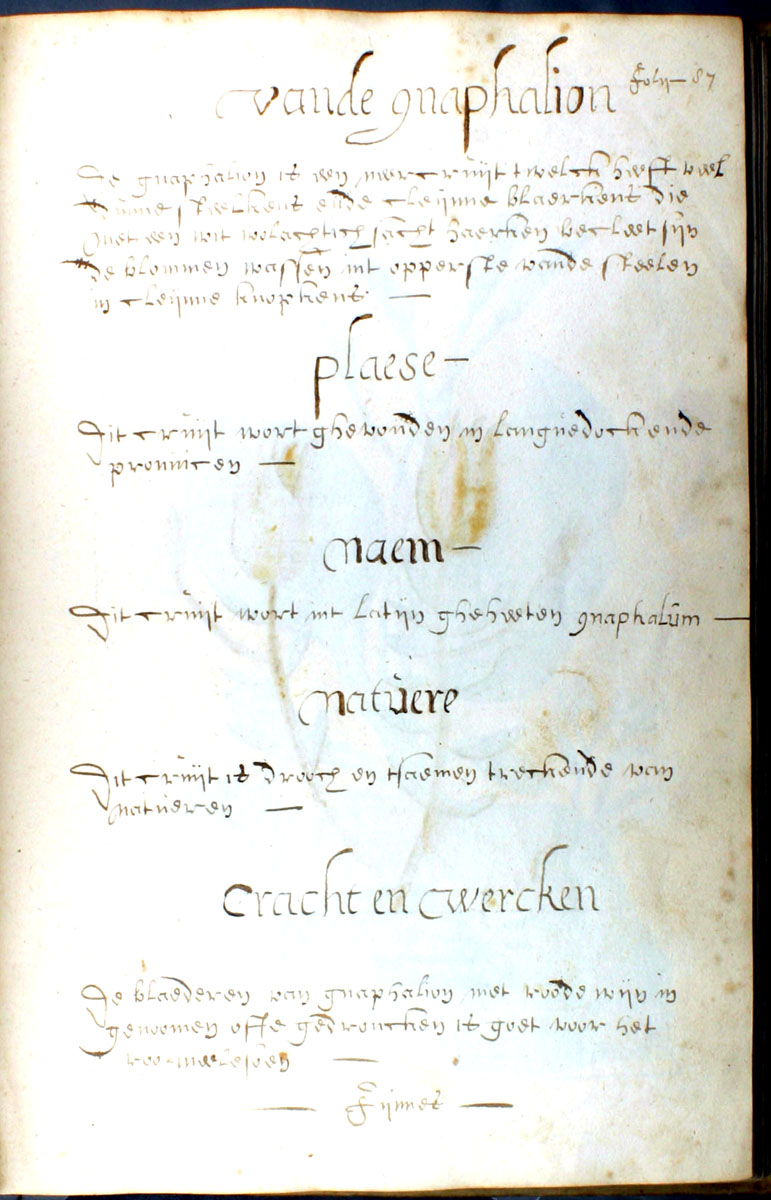 Folij 87
vande gnaphalion
De gnaphalion is een meer cruijt twelck heeft veel
dunne steelkens ende cleijnne blaerkens die
met een wit wolachtich sacht haerken becleet sijn
de blommen wassen int opperste vande steelen
in cleijnne knopkens —
plaese —
Dit cruijt wort ghevonden in languedock ende
provincen —
Naem —
Dit cruijt wort int latijn gheheeten gnaphalum —
Natuere
Dit cruijt is drooch en tsaemen treckende van
natueren —
Cracht en wercken
De blaederen van gnaphalion met roode wijn in
genoomen ofte gedroncken is goet voor het
roo meelesoen —
— Fiinnes —